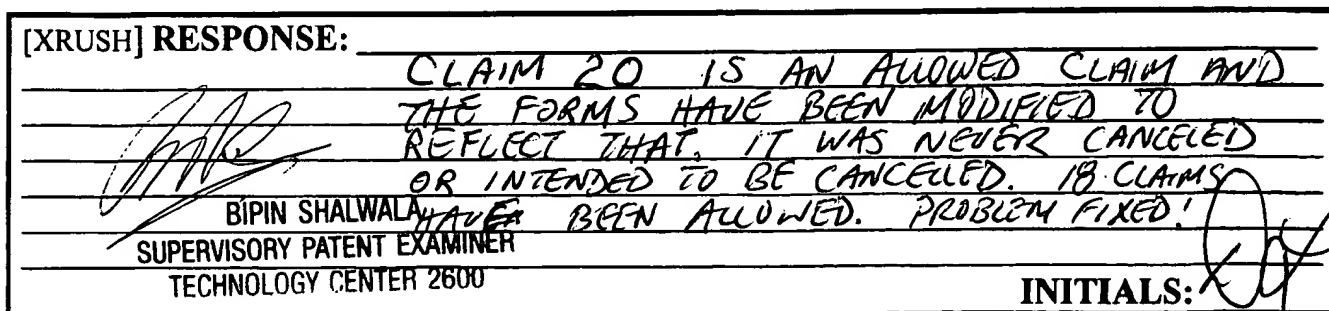 [XRUSH] RESPONSE:
CLAIM 20 IS AN ALLOWED CLAIM AND
THE FORMS HAVE BEEN MODIFIED TO
REFLECT THAT. IT WAS NEVER CANCELED
OR INTENDED TO BE CANCELLED. 18 CLAIMS
HAVE BEEN ALLOWED. PROBLEM FIXED!
BIPIN SHALWALA
SUPERVISORY PATENT EXAMINER
TECHNOLOGY CENTER 2600
INITIALS: